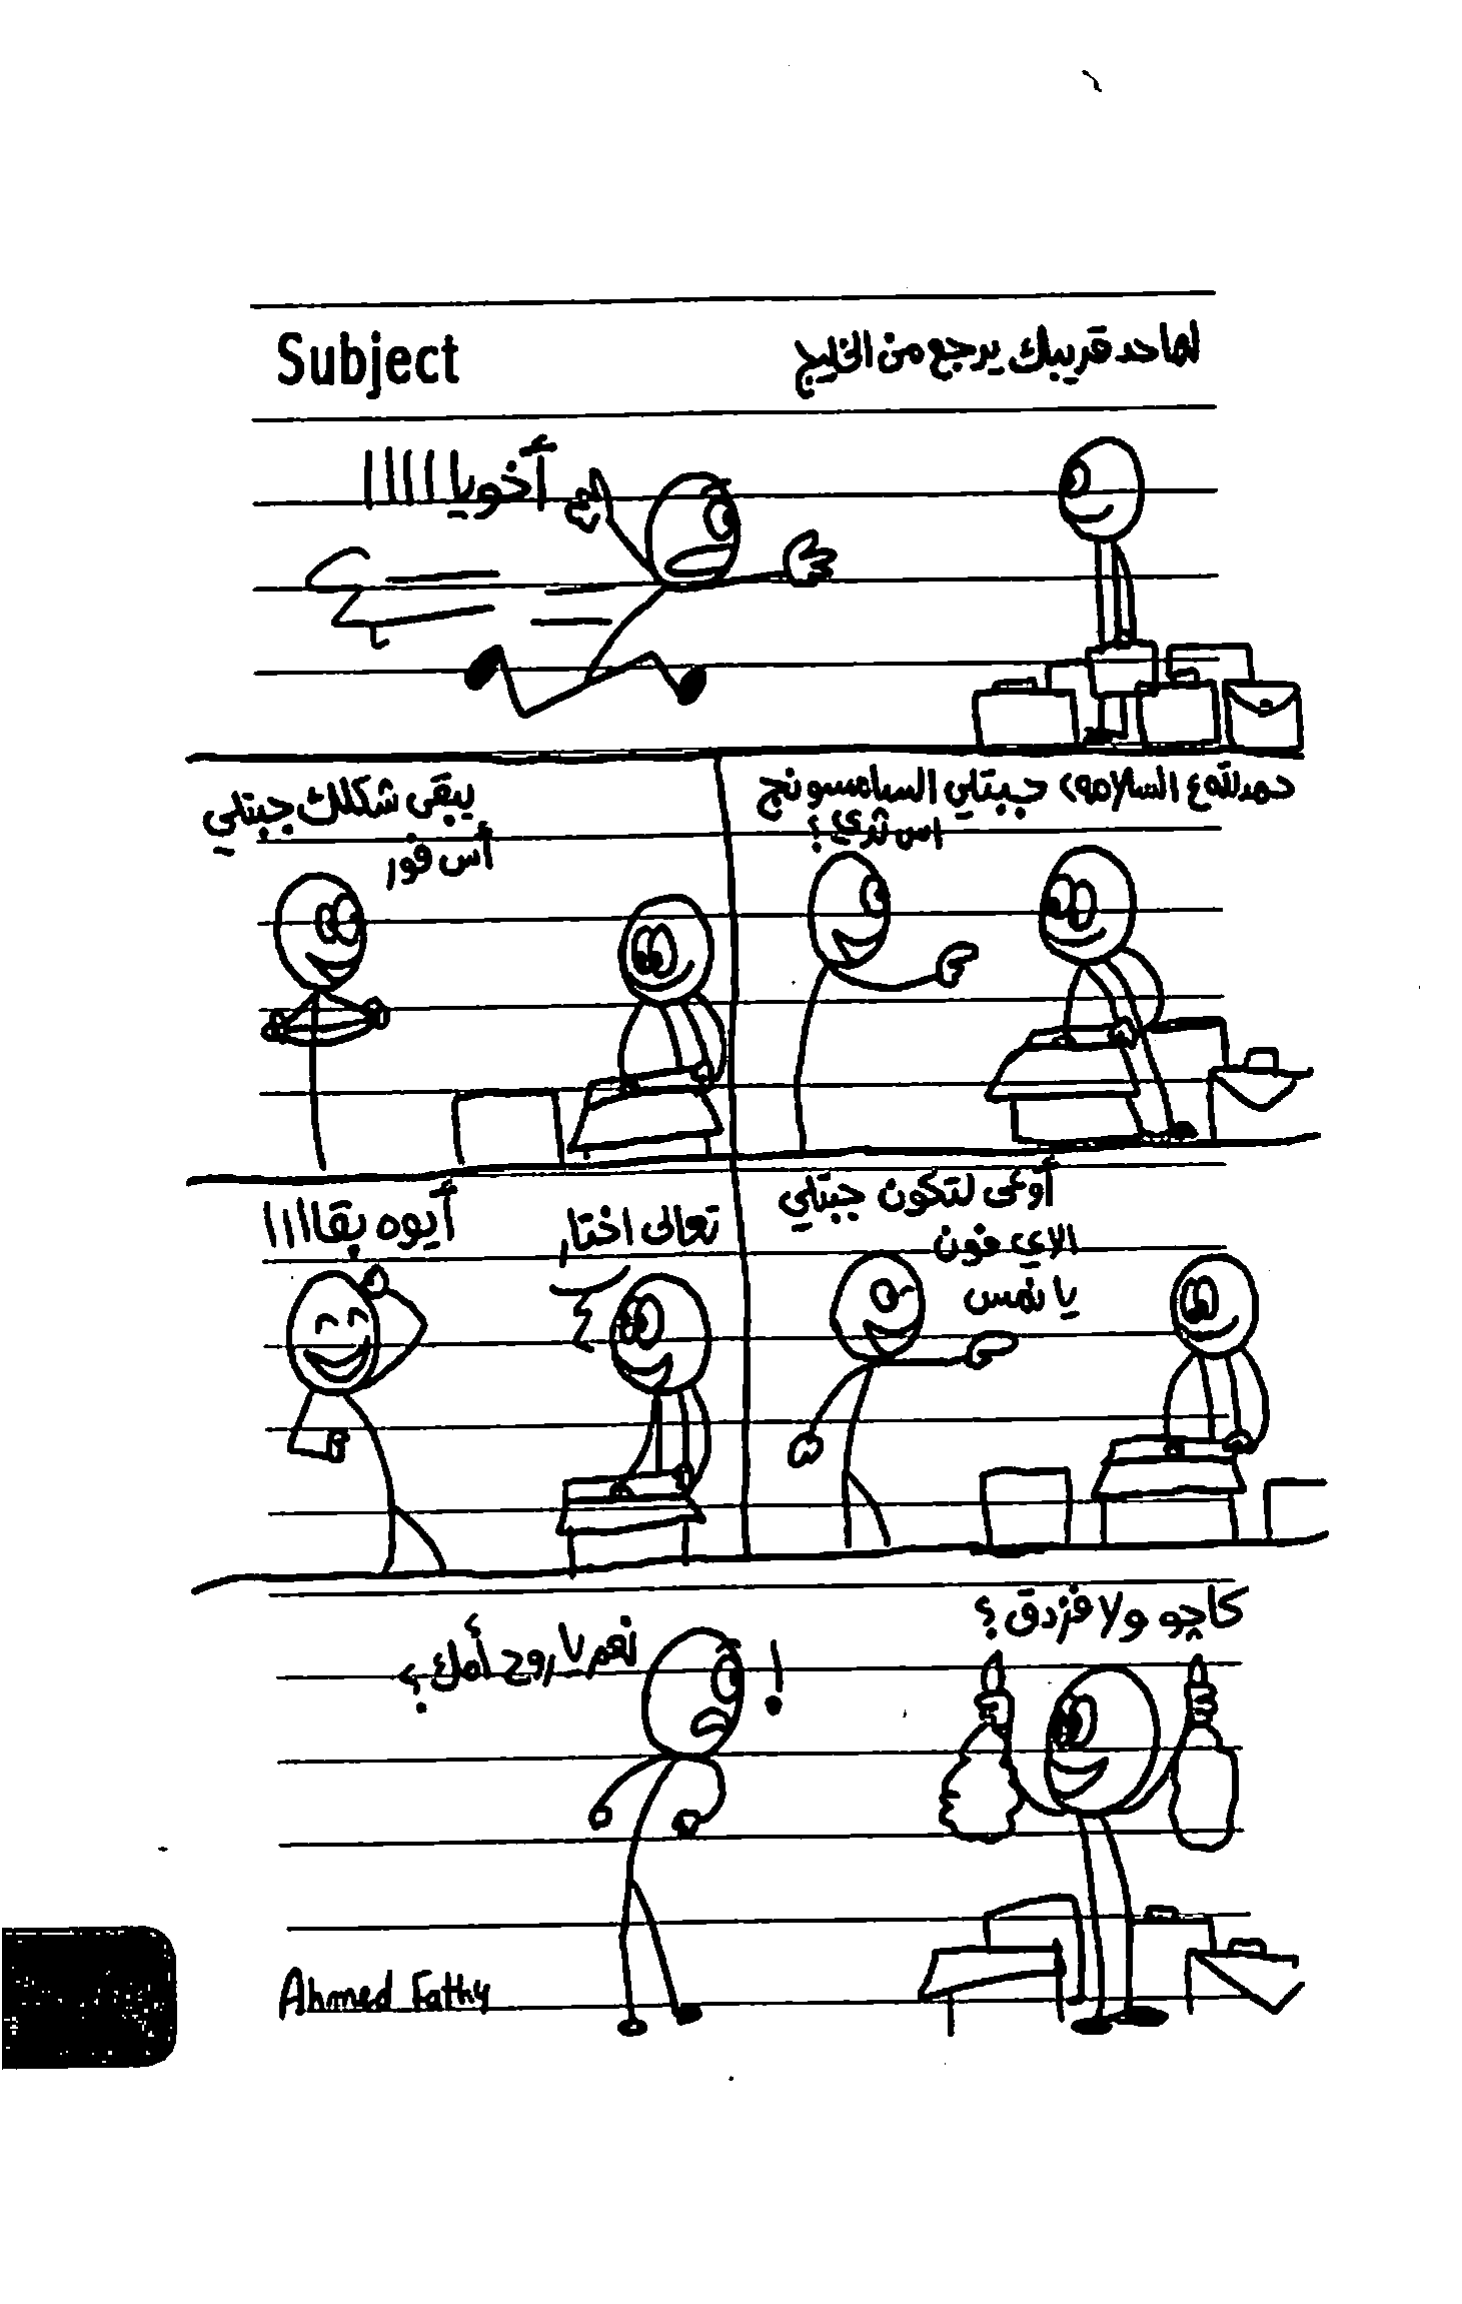 Subject
لما حد قريبك يرجع من الخليج
أخوياااااا
حمدلله ع السلامه، جبتلي السامسونج
اس ثري؟
يبقى شكلك جبتلي
أس فور
أوعى لتكون جبتلي
الاي فون
يا نمس
تعالى اختار
أيوه بقاااا
كاجو ولا فزدق؟
!
نعم يا روح أمك؟
Ahmed Fathy